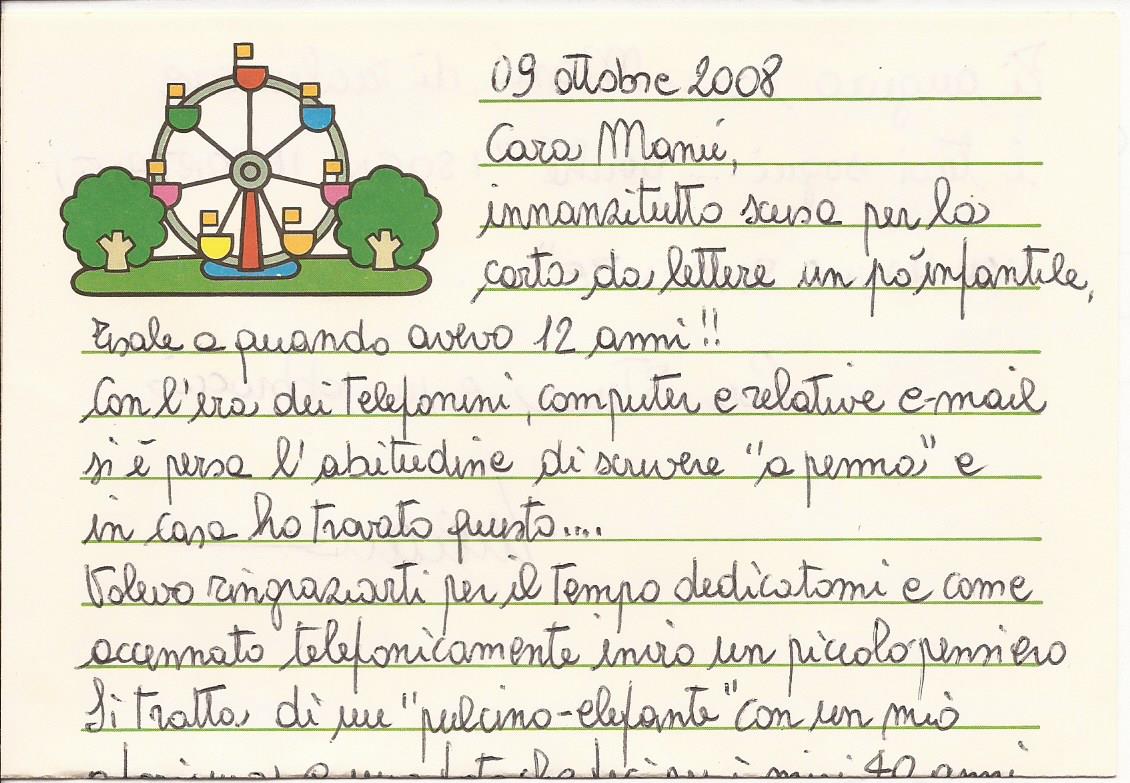 09 ottobre 2008
Cara Manu,
innanzitutto scusa per la
carta da lettere un pò infantile,
risale a quando avevo 12 anni!!
Con l'era dei telefonini, computer e relative e-mail
si è persa l'abitudine di scrivere "a penna" e
in casa ho trovato questo....
Volevo ringraziarti per il tempo dedicatomi e come
accennato telefonicamente invio un piccolo pensiero
Si tratta di un "pulcino-elefante" con un mio
40 anni